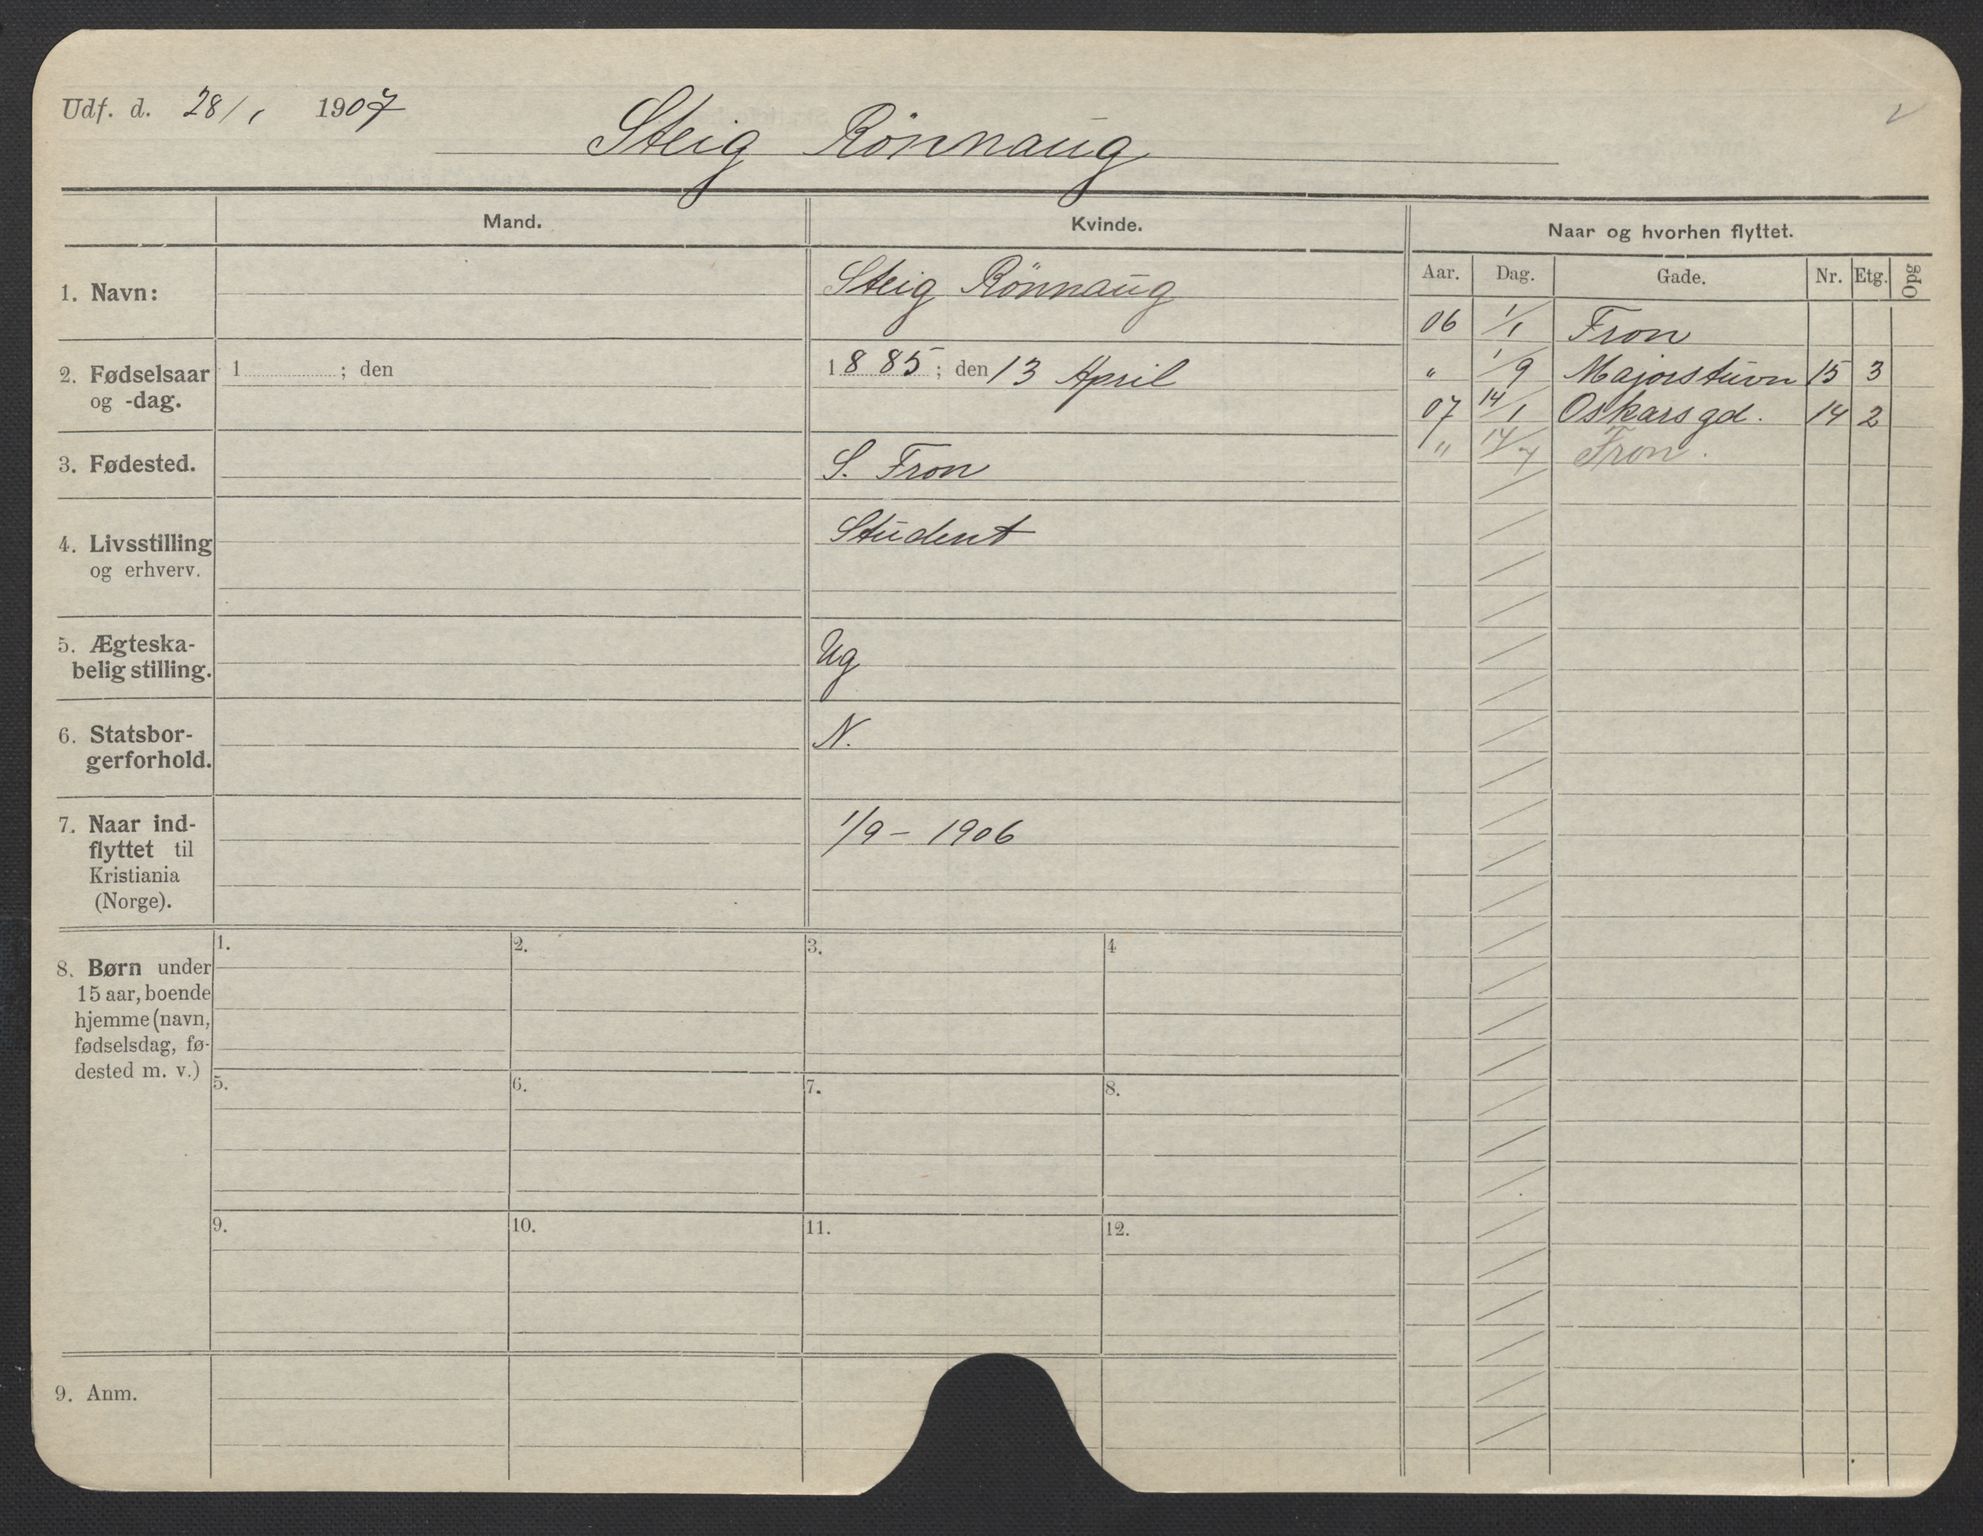 Udf. d. 28/1 1907
Steig Rönnaug
Mand.
Kvinde.
Naar og hvorhen flyttet.
Aar. Dag. Gade. Nr. Etg. Opg
06 1/1 Fron
" 1/9 Majorstuvn 15 3
07 14/1 Oskarsgd. 14 2
" 14/7 Fron.
1. Navn:
Steig Rönnaug
2. Fødselsaar
og -dag.
1 ; den
1885; den 13 April
3. Fødested.
S. Fron
4. Livsstilling
og erhverv.
Student
5. Ægteska-
belig stilling.
Ug
6. Statsbor-
gerforhold.
N.
7. Naar ind-
flyttet til
Kristiania
(Norge).
1/9 - 1906
8. Børn under
15 aar, boende
hjemme (navn,
fødselsdag, fø-
dested m. v.)
1. 2. 3. 4
5. 6. 7. 8.
9. 10. 11. 12.
9. Anm.